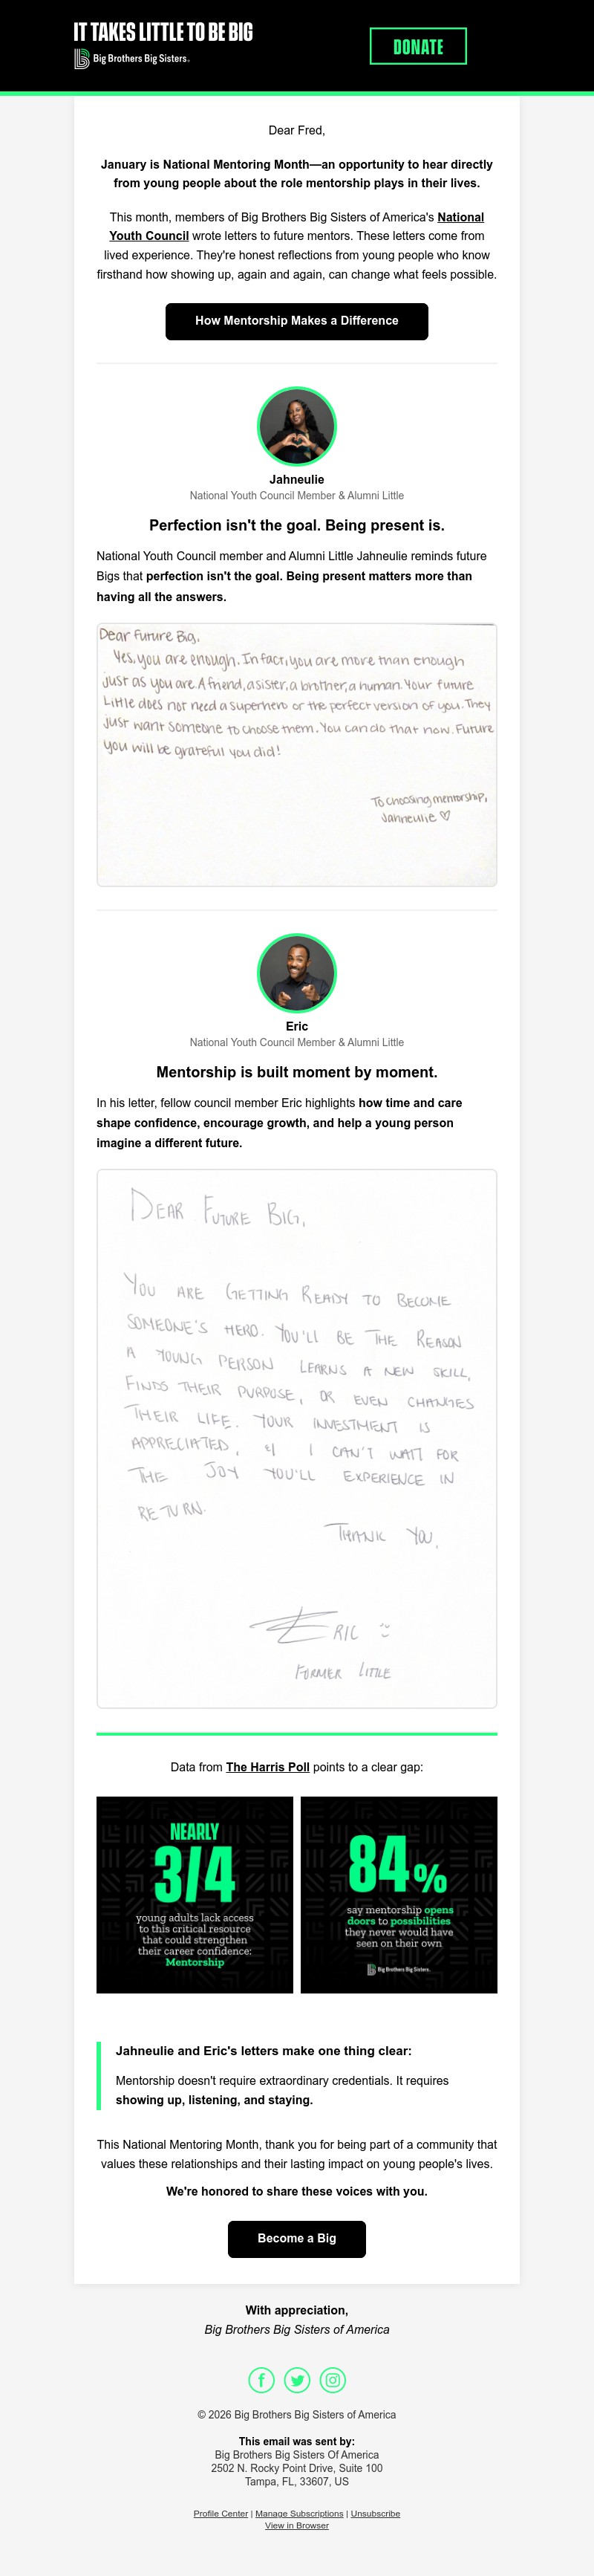 IT TAKES LITTLE TO BE BIG
Big Brothers Big Sisters.
DONATE
Dear Fred,
January is National Mentoring Month—an opportunity to hear directly
from young people about the role mentorship plays in their lives.
This month, members of Big Brothers Big Sisters of America's National
Youth Council wrote letters to future mentors. These letters come from
lived experience. They're honest reflections from young people who know
firsthand how showing up, again and again, can change what feels possible.
How Mentorship Makes a Difference
Jahneulie
National Youth Council Member & Alumni Little
Perfection isn't the goal. Being present is.
National Youth Council member and Alumni Little Jahneulie reminds future
Bigs that perfection isn't the goal. Being present matters more than
having all the answers.
Dear Future Big,
Yes, you are enough. In fact, you are more than enough
just as you are. A friend, a sister, a brother, a human. Your future
Little does not need a superhero or the perfect version of you. They
just want someone to choose them. You can do that now. Future
you will be grateful you did!
To choosing mentorship,
Jahneulie ♡
Eric
National Youth Council Member & Alumni Little
Mentorship is built moment by moment.
In his letter, fellow council member Eric highlights how time and care
shape confidence, encourage growth, and help a young person
imagine a different future.
DEAR FUTURE BIG,
YOU ARE GETTING READY TO BECOME
SOMEONE'S HERO. YOU'LL BE THE REASON
A YOUNG PERSON LEARNS A NEW SKILL,
FINDS THEIR PURPOSE, OR EVEN CHANGES
THEIR LIFE. YOUR INVESTMENT IS
APPRECIATED, & I CAN'T WAIT FOR
THE JOY YOU'LL EXPERIENCE IN
RETURN.
THANK YOU,
ERIC :)
FORMER LITTLE
Data from The Harris Poll points to a clear gap:
NEARLY
3/4
young adults lack access
to this critical resource
that could strengthen
their career confidence:
Mentorship
84%
say mentorship opens
doors to possibilities
they never would have
seen on their own
Big Brothers Big Sisters.
Jahneulie and Eric's letters make one thing clear:
Mentorship doesn't require extraordinary credentials. It requires
showing up, listening, and staying.
This National Mentoring Month, thank you for being part of a community that
values these relationships and their lasting impact on young people's lives.
We're honored to share these voices with you.
Become a Big
With appreciation,
Big Brothers Big Sisters of America
© 2026 Big Brothers Big Sisters of America
This email was sent by:
Big Brothers Big Sisters Of America
2502 N. Rocky Point Drive, Suite 100
Tampa, FL, 33607, US
Profile Center | Manage Subscriptions | Unsubscribe
View in Browser